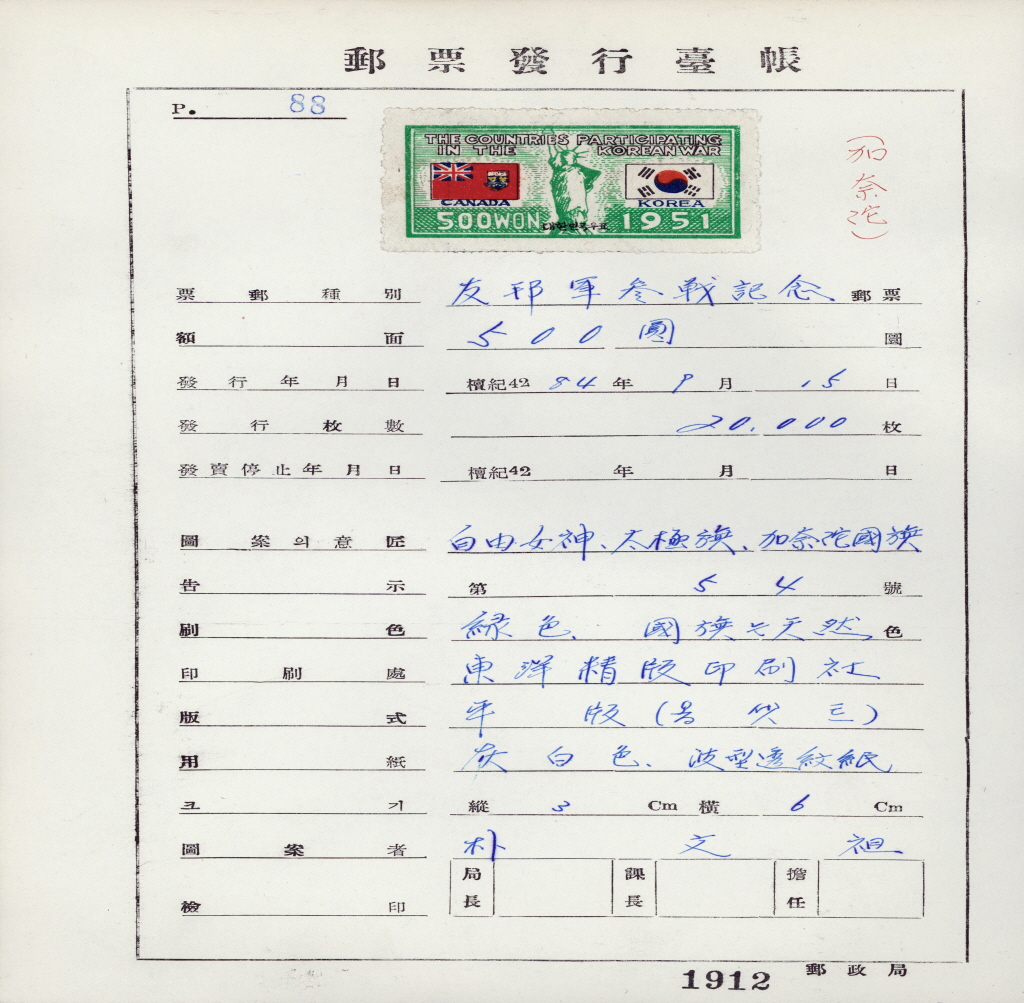 郵票發行臺帳
P. 88
THE COUNTRIES PARTICIPATING
IN THE KOREAN WAR
CANADA KOREA
500WON 대한민국우표 1951
(加奈陀)
票郵種別 友邦軍參戰記念 郵票
額面 500 圓 圜
發行年月日 檀紀42 84 年 9 月 15 日
發行枚數 20,000 枚
發賣停止年月日 檀紀42 年 月 日
圖案의意匠 自由女神、太極旗、加奈陀國旗
告示 第 54 號
刷色 緑色、國旗と天然 色
印刷處 東洋精版印刷社
版式 平版
用紙 灰白色、波型透紋紙
크기 縱 3 Cm 橫 6 Cm
圖案者 朴文祖
檢印 局長 課長 擔任
1912 郵政局